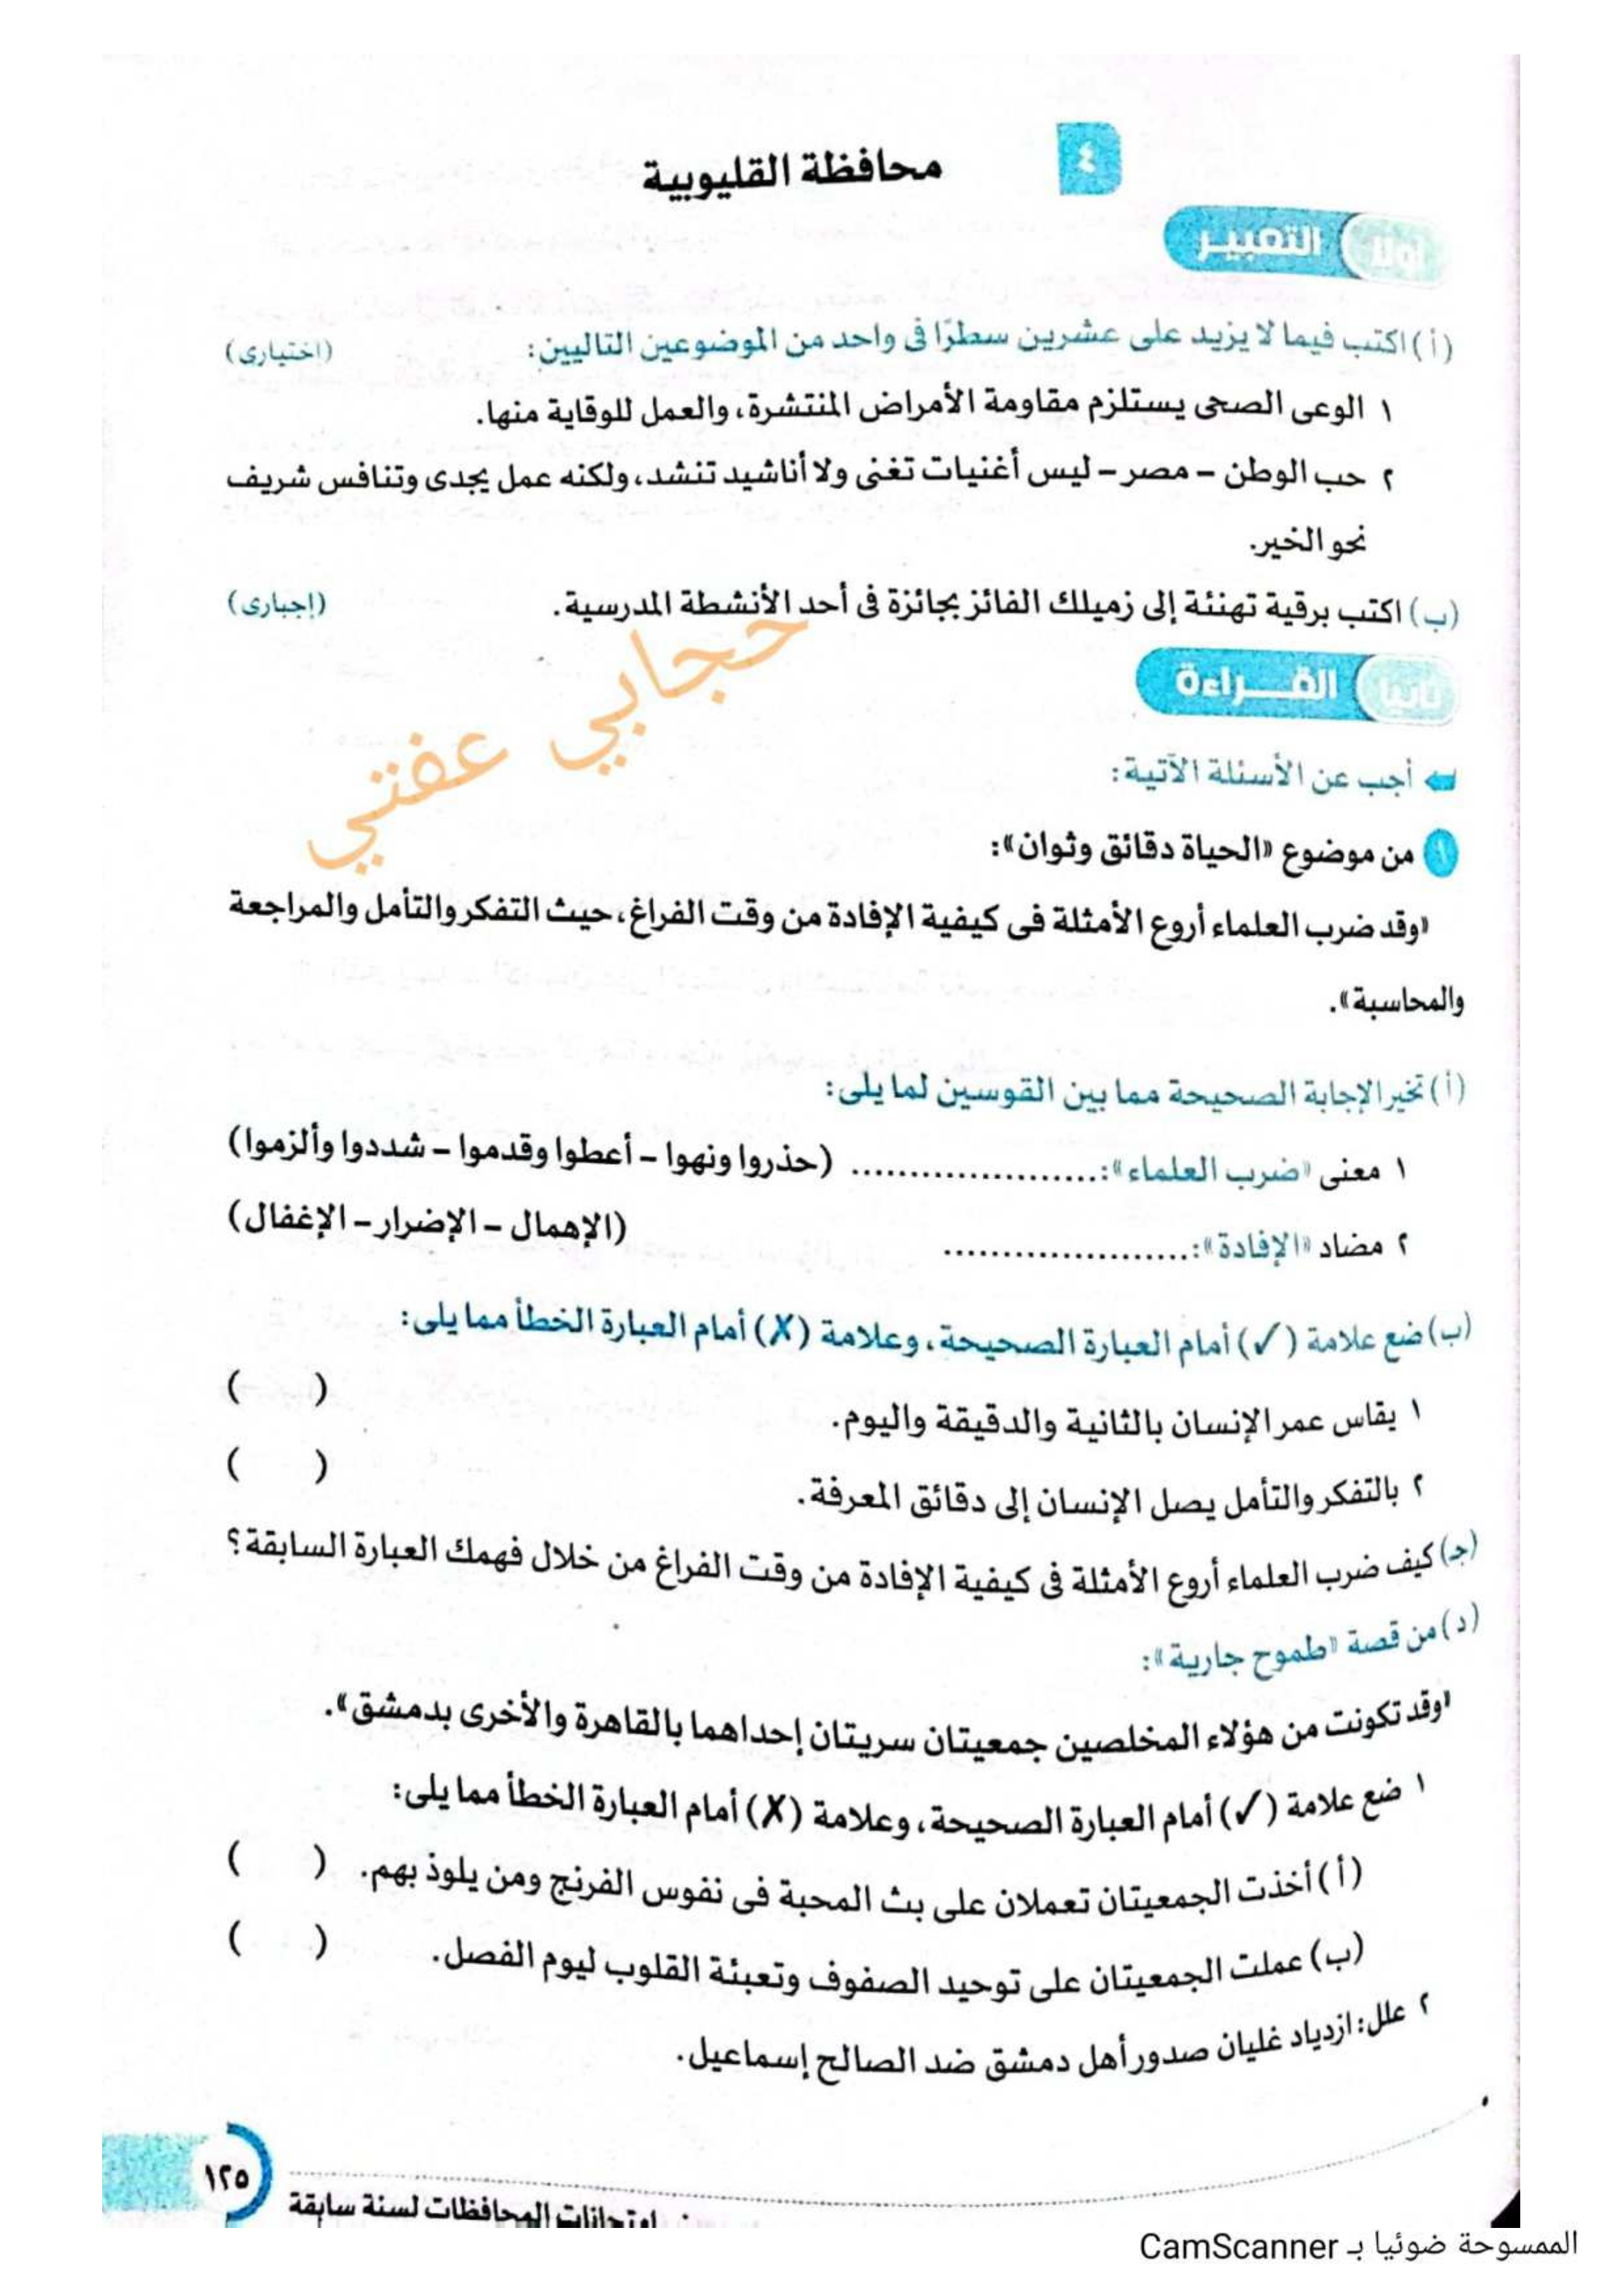 ٤
محافظة القليوبية
أولا التعبير
(أ) اكتب فيما لا يزيد على عشرين سطرًا فى واحد من الموضوعين التاليين: (اختيارى)
١ الوعى الصحى يستلزم مقاومة الأمراض المنتشرة، والعمل للوقاية منها.
٢ حب الوطن - مصر - ليس أغنيات تغنى ولا أناشيد تنشد، ولكنه عمل يجدى وتنافس شريف
نحو الخير.
(ب) اكتب برقية تهنئة إلى زميلك الفائز بجائزة فى أحد الأنشطة المدرسية. (إجبارى)
حجابي عفتي
ثانيا القـــراءة
أجب عن الأسئلة الآتية:
١ من موضوع «الحياة دقائق وثوان»:
«وقد ضرب العلماء أروع الأمثلة فى كيفية الإفادة من وقت الفراغ، حيث التفكر والتأمل والمراجعة
والمحاسبة».
(أ) تخير الإجابة الصحيحة مما بين القوسين لما يلى:
١ معنى «ضرب العلماء»: ..................... (حذروا ونهوا - أعطوا وقدموا - شددوا وألزموا)
٢ مضاد «الإفادة»: ..................... (الإهمال - الإضرار - الإغفال)
(ب) ضع علامة (✓) أمام العبارة الصحيحة، وعلامة (✗) أمام العبارة الخطأ مما يلى:
١ يقاس عمر الإنسان بالثانية والدقيقة واليوم. ( )
٢ بالتفكر والتأمل يصل الإنسان إلى دقائق المعرفة. ( )
(جـ) كيف ضرب العلماء أروع الأمثلة فى كيفية الإفادة من وقت الفراغ من خلال فهمك العبارة السابقة؟
(د) من قصة «طموح جارية»:
«وقد تكونت من هؤلاء المخلصين جمعيتان سريتان إحداهما بالقاهرة والأخرى بدمشق».
١ ضع علامة (✓) أمام العبارة الصحيحة، وعلامة (✗) أمام العبارة الخطأ مما يلى:
(أ) أخذت الجمعيتان تعملان على بث المحبة فى نفوس الفرنج ومن يلوذ بهم. ( )
(ب) عملت الجمعيتان على توحيد الصفوف وتعبئة القلوب ليوم الفصل. ( )
٢ علل: ازدياد غليان صدور أهل دمشق ضد الصالح إسماعيل.
١٢٥
امتحانات المحافظات لسنة سابقة
الممسوحة ضوئيا بـ CamScanner